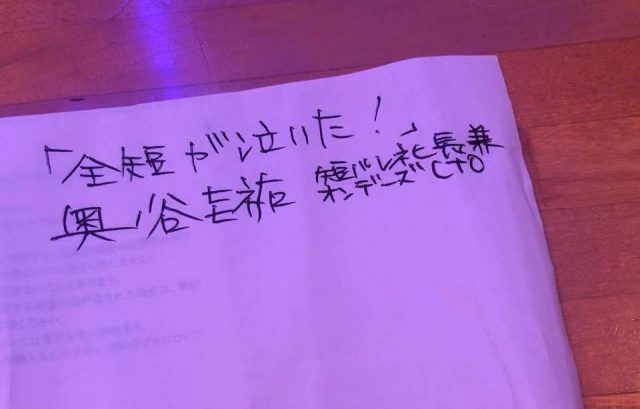 「全短が泣いた！」
奥ノ谷圭祐 短パン社長兼
オンデーズCTO